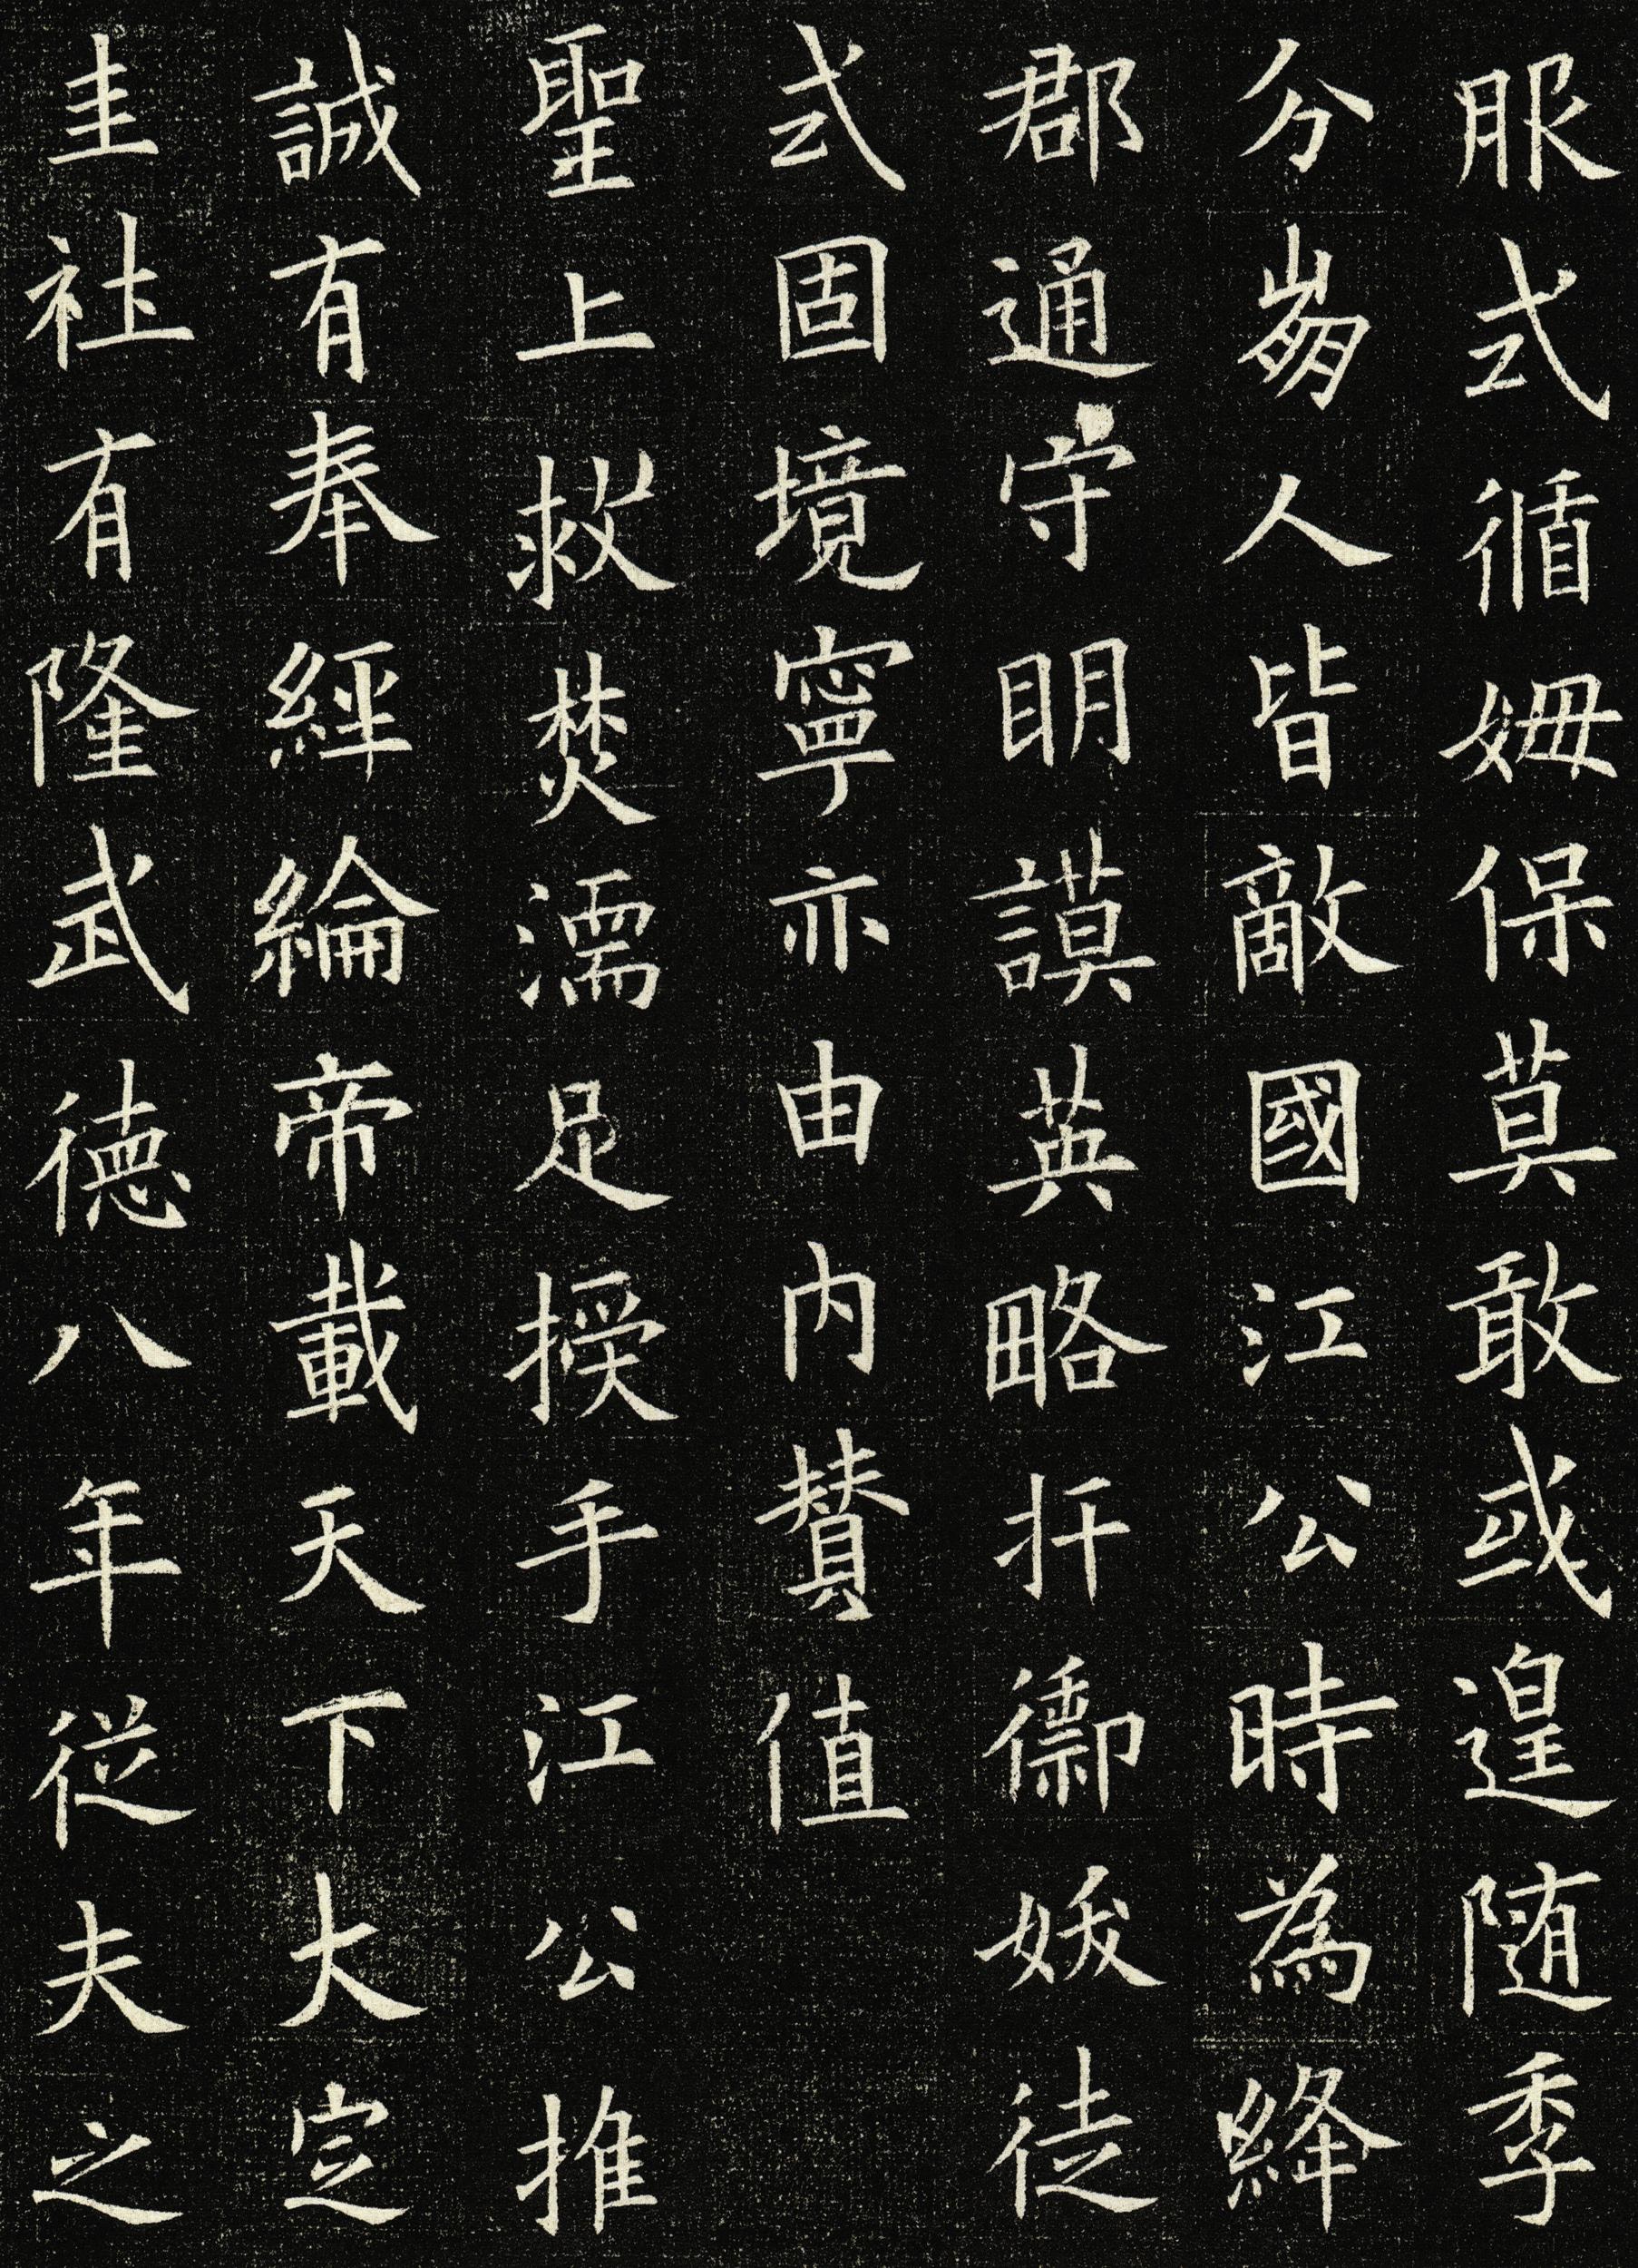 服式循姆保莫敢或遑隨季
分崩人皆敵國江公時為絳
郡通守明謨英略扞禦妖徒
式固境寧亦由內贊值
聖上救焚濡足授手江公推
誠有奉經綸帝載天下大定
圭社有隆武德八年從夫之